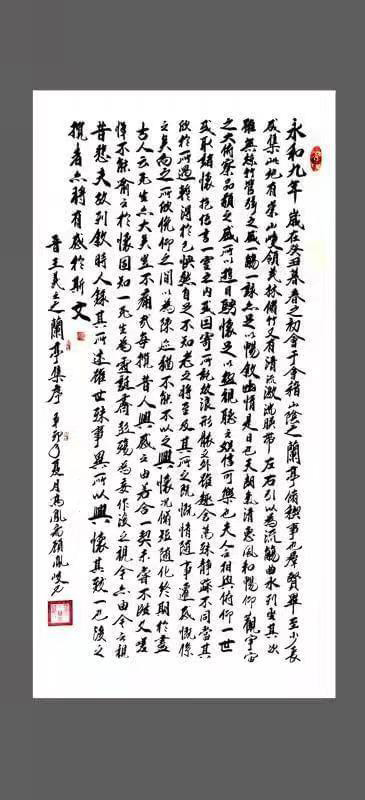 永和九年歲在癸丑暮春之初會于會稽山陰之蘭亭脩禊事也群賢畢至少長
咸集此地有崇山峻領茂林脩竹又有清流激湍暎帶左右引以為流觴曲水列坐其次
雖無絲竹管弦之盛一觴一詠亦足以暢敘幽情是日也天朗氣清惠風和暢仰觀宇宙
之大俯察品類之盛所以遊目騁懷足以極視聽之娛信可樂也夫人之相與俯仰一世
或取諸懷抱悟言一室之內或因寄所託放浪形骸之外雖趣舍萬殊靜躁不同當其
欣於所遇暫得於己怏然自足不知老之將至及其所之既惓情隨事遷感慨係
之矣向之所欣俛仰之間以為陳迹猶不能不以之興懷況脩短隨化終期於盡
古人云死生亦大矣豈不痛哉每攬昔人興感之由若合一契未嘗不臨文嗟
悼不能喻之於懷固知一死生為虛誕齊彭殤為妄作後之視今亦由今之視
昔悲夫故列敘時人錄其所述雖世殊事異所以興懷其致一也後之
攬者亦將有感於斯文
晉王羲之蘭亭集序 辛卯夏月